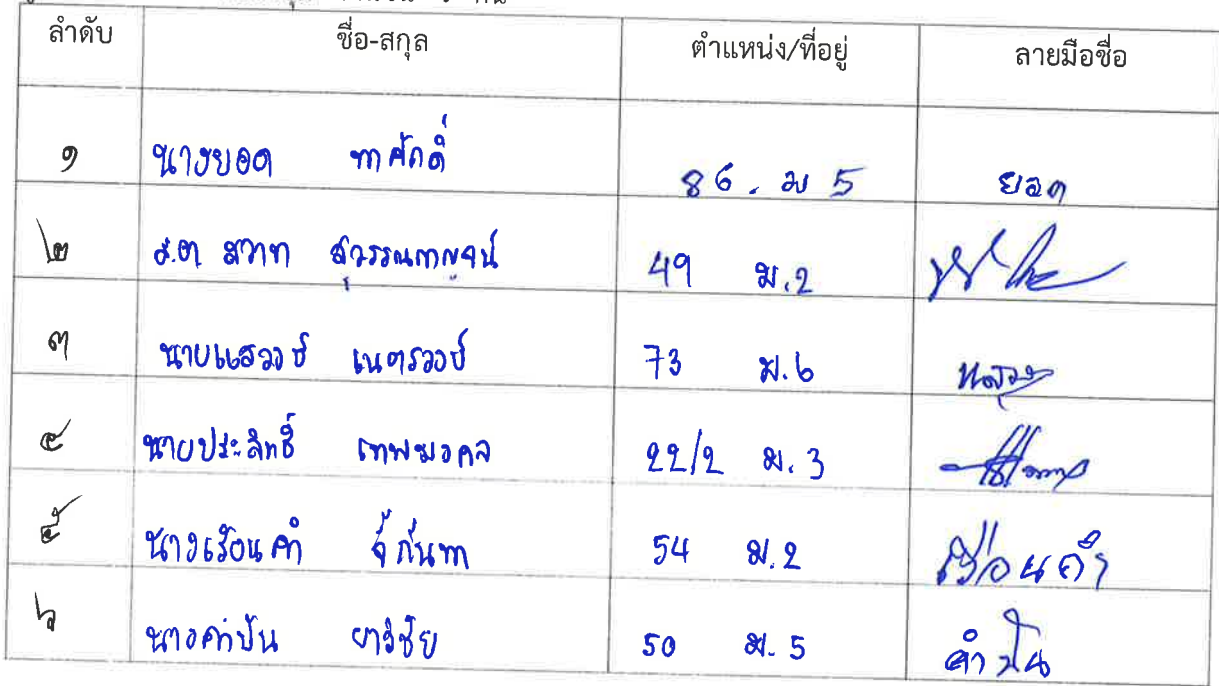 ลำดับ ชื่อ-สกุล ตำแหน่ง/ที่อยู่ ลายมือชื่อ
๑ นางยอด ทาศักดิ์ 86 . ม 5 ยอด
๒ ส.ต สวาท สุวรรณกาญจน์ 49 ม.2
๓ นายแสวงษ์ เนตรวงษ์ 73 ม.6
๔ นายประสิทธิ์ เทพมงคล 22/2 ม. 3
๕ นางเรือนคำ จี๋กันทา 54 ม.2 เรือนคำ
๖ นางคำปัน ยาวิชัย 50 ม. 5 คำปัน